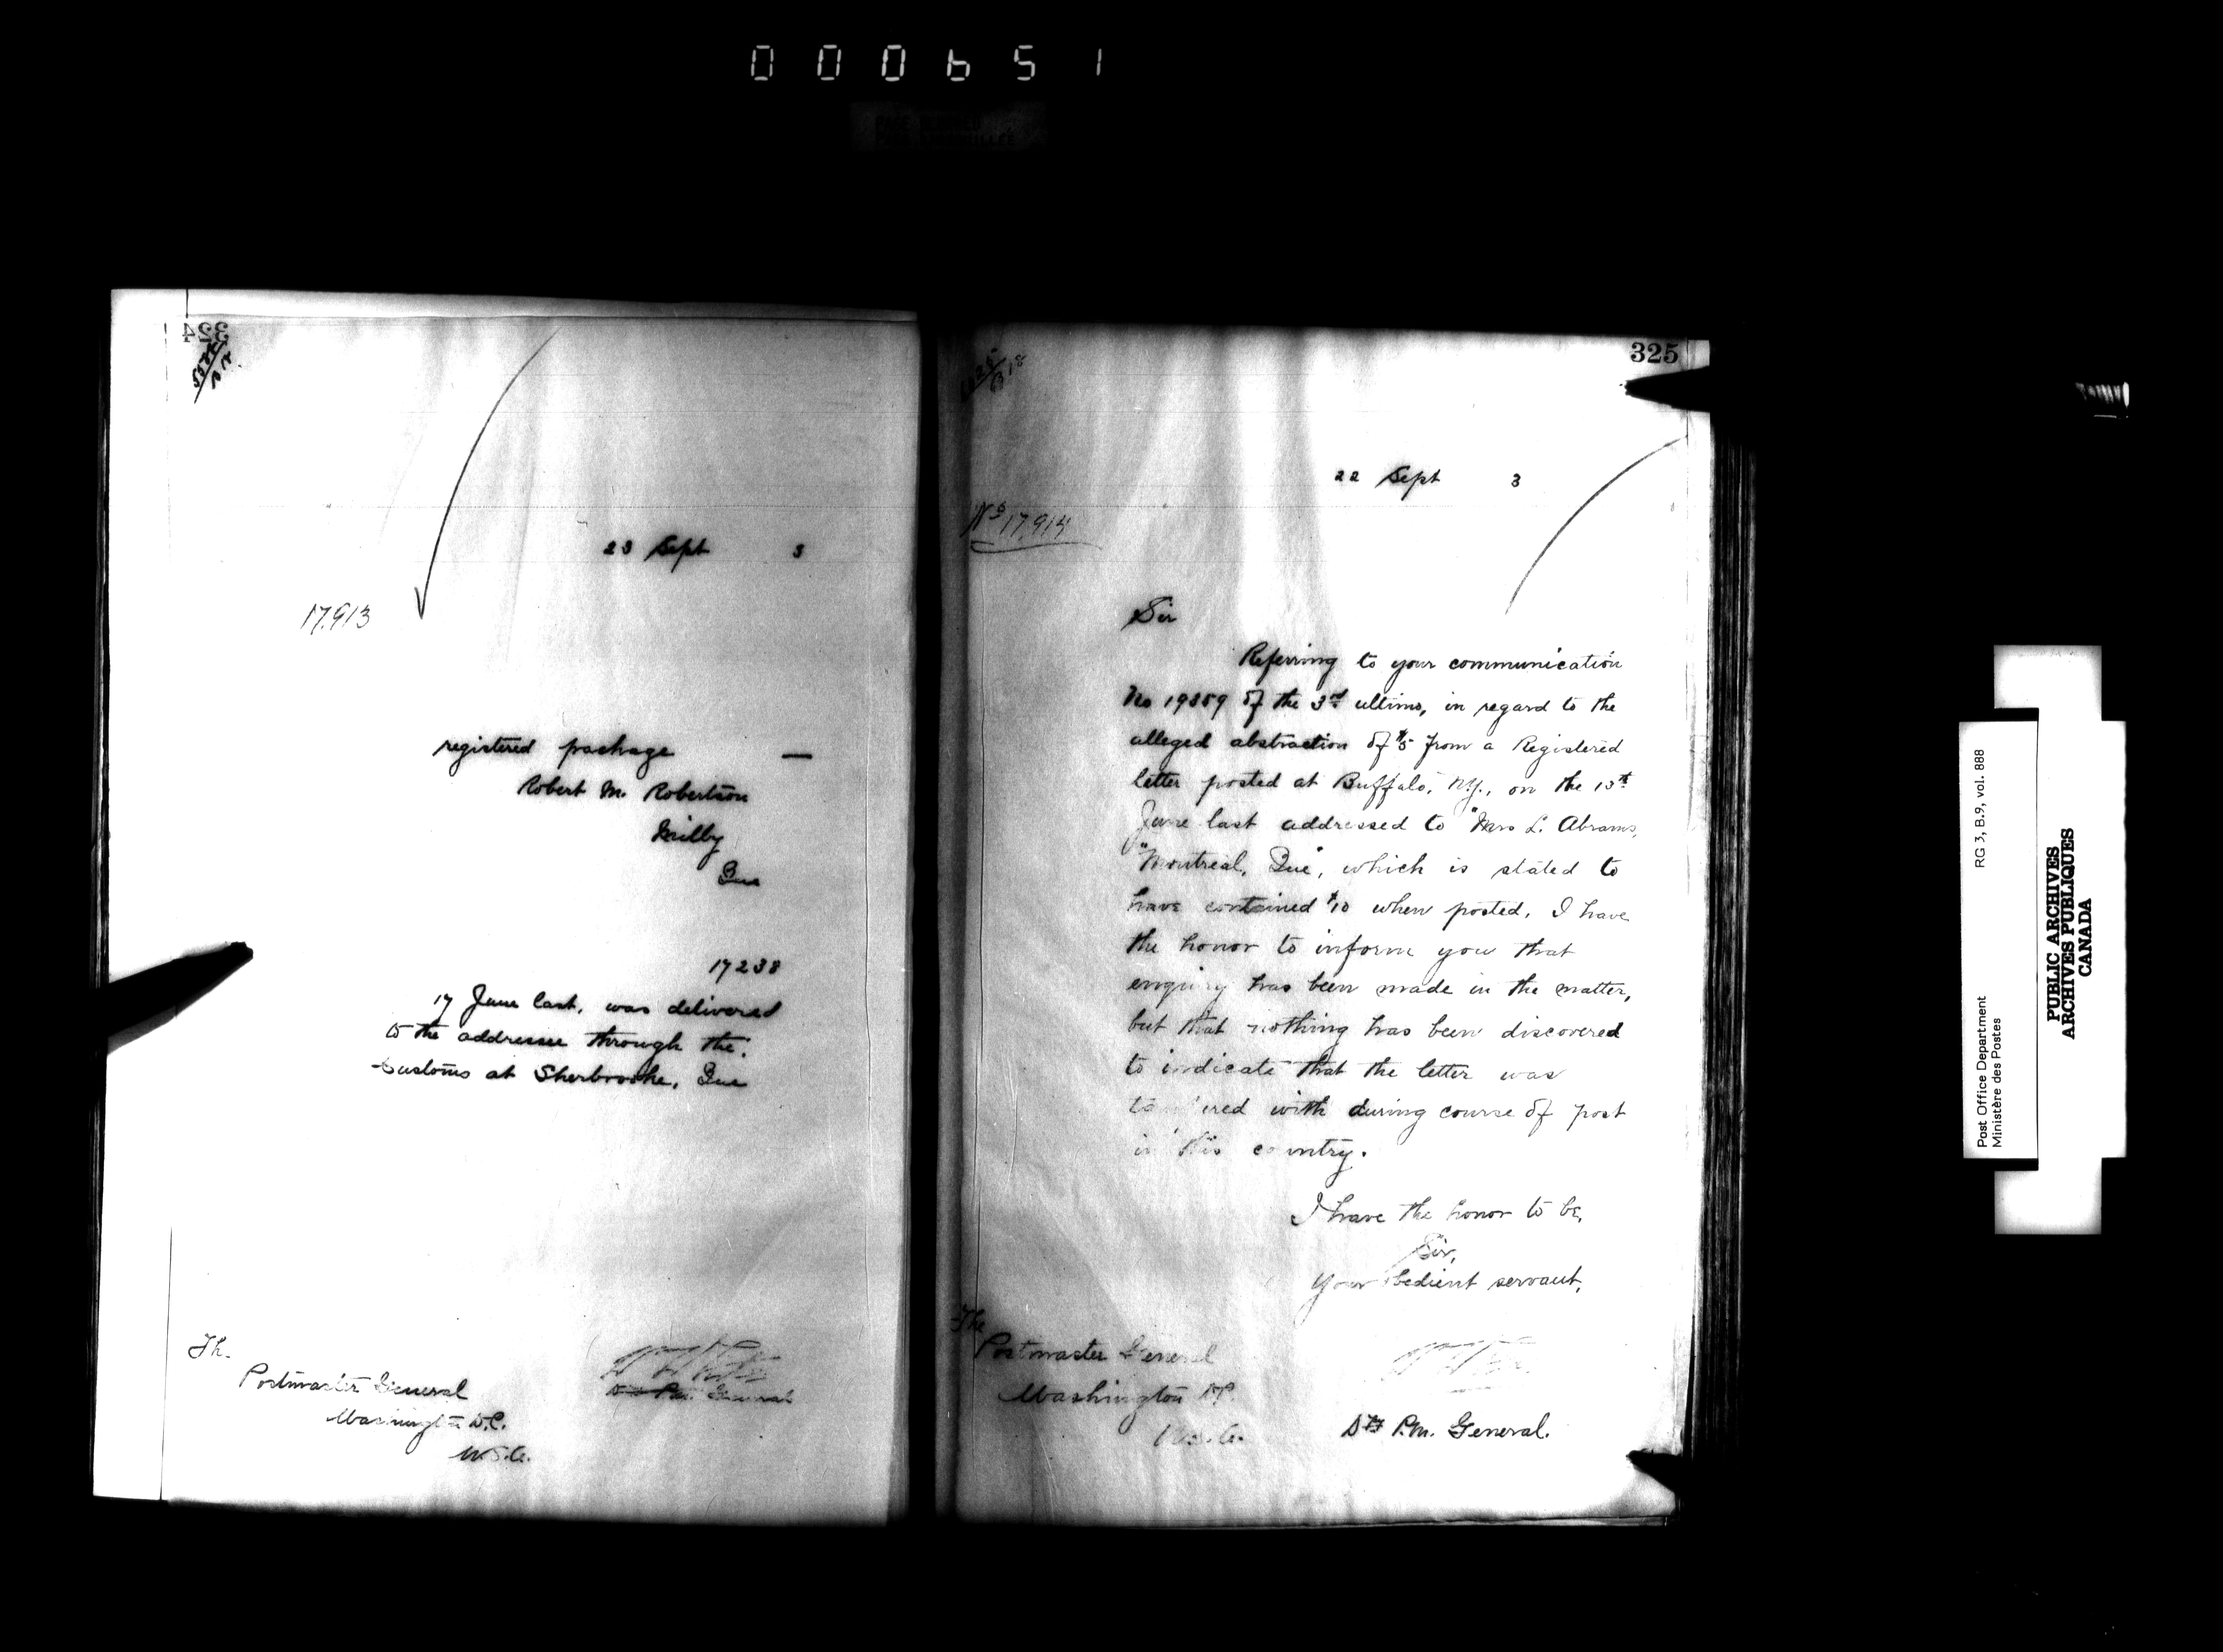 000651
324
23 Sept 3
17.913
registered package —
Robert M. Robertson
Milby
Que
17238
17 June last, was delivered
to the addressee through the
Customs at Sherbrooke, Que
Th.
Postmaster General
Washington D.C.
U.S.A.
P.M. General
325
22 Sept 3
No 17.914
Sir
Referring to your communication
No 19359 of the 3rd ultimo, in regard to the
alleged abstraction of $5 from a Registered
letter posted at Buffalo, N.Y., on the 13th
June last addressed to "Mrs L. Abrams,
"Montreal, Que", which is stated to
have contained $10 when posted, I have
the honor to inform you that
enquiry has been made in the matter,
but that nothing has been discovered
to indicate that the letter was
tampered with during course of post
in this country.
I have the honor to be,
Sir,
Your obedient servant,
The
Postmaster General
Washington D.C.
U.S.A.
Dty P.M. General.
RG 3, B.9, vol. 888
Post Office Department
Ministère des Postes
PUBLIC ARCHIVES
ARCHIVES PUBLIQUES
CANADA